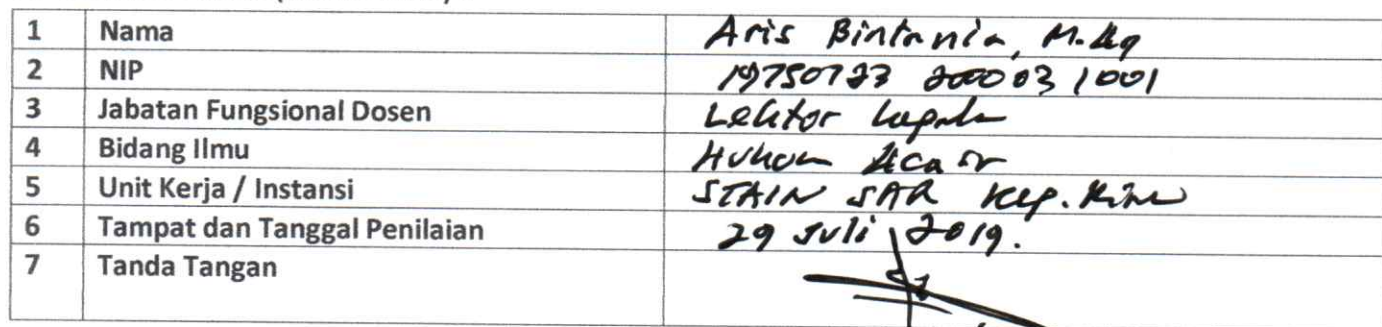 1 Nama Aris Bintania, M.Ag
2 NIP 19750723 200003 1001
3 Jabatan Fungsional Dosen Lektor Kepala
4 Bidang Ilmu Hukum Acara
5 Unit Kerja / Instansi STAIN SAR Kep. Riau
6 Tampat dan Tanggal Penilaian 29 Juli 2019.
7 Tanda Tangan